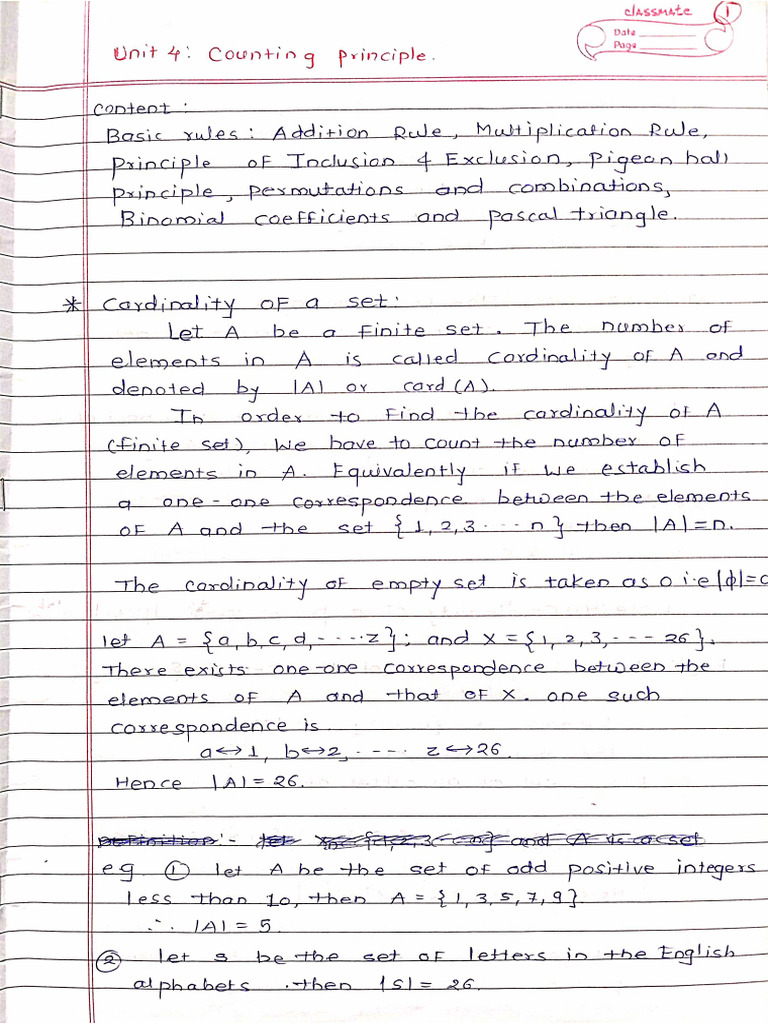 classmate ①
Date
Page
Unit 4: Counting principle.
Content:
Basic rules: Addition Rule, Multiplication Rule,
Principle of Inclusion & Exclusion, pigeon hall
principle, permutations and combinations,
Binomial coefficients and pascal triangle.
* Cardinality of a set:
Let A be a finite set. The number of
elements in A is called cardinality of A and
denoted by |A| or card (A).
In order to find the cardinality of A
(finite set), we have to count the number of
elements in A. Equivalently if we establish
a one-one correspondence between the elements
of A and the set {1,2,3 ---- n} then |A|=n.
The cardinality of empty set is taken as 0 i.e |ϕ|=0
let A = {a,b,c,d,-----z}; and X = {1,2,3,---- 26}.
There exists one-one correspondence between the
elements of A and that of X. one such
correspondence is
a↔1, b↔2, ---- z↔26.
Hence |A|=26.
Definition:- let X = {1,2,3 --- n} and A is a set
eg ① let A be the set of odd positive integers
less than 10, then A = {1,3,5,7,9}
∴ |A| = 5
② let s be the set of letters in the English
alphabets .then |S| = 26.